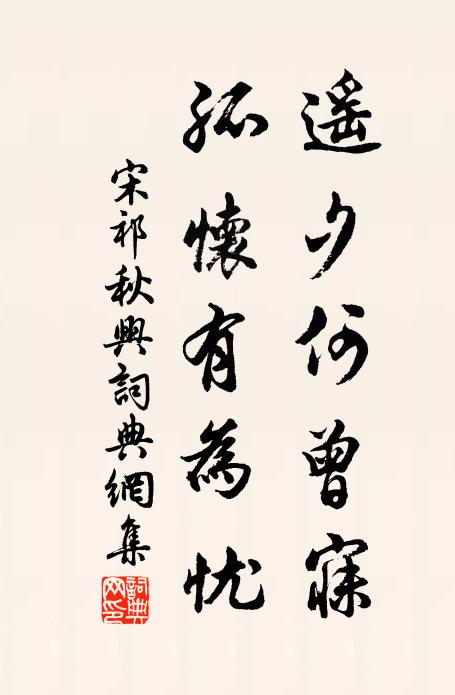 遥夕何曾寐
孤懷有為忧
宋祁秋興詞典網集
詞典网印